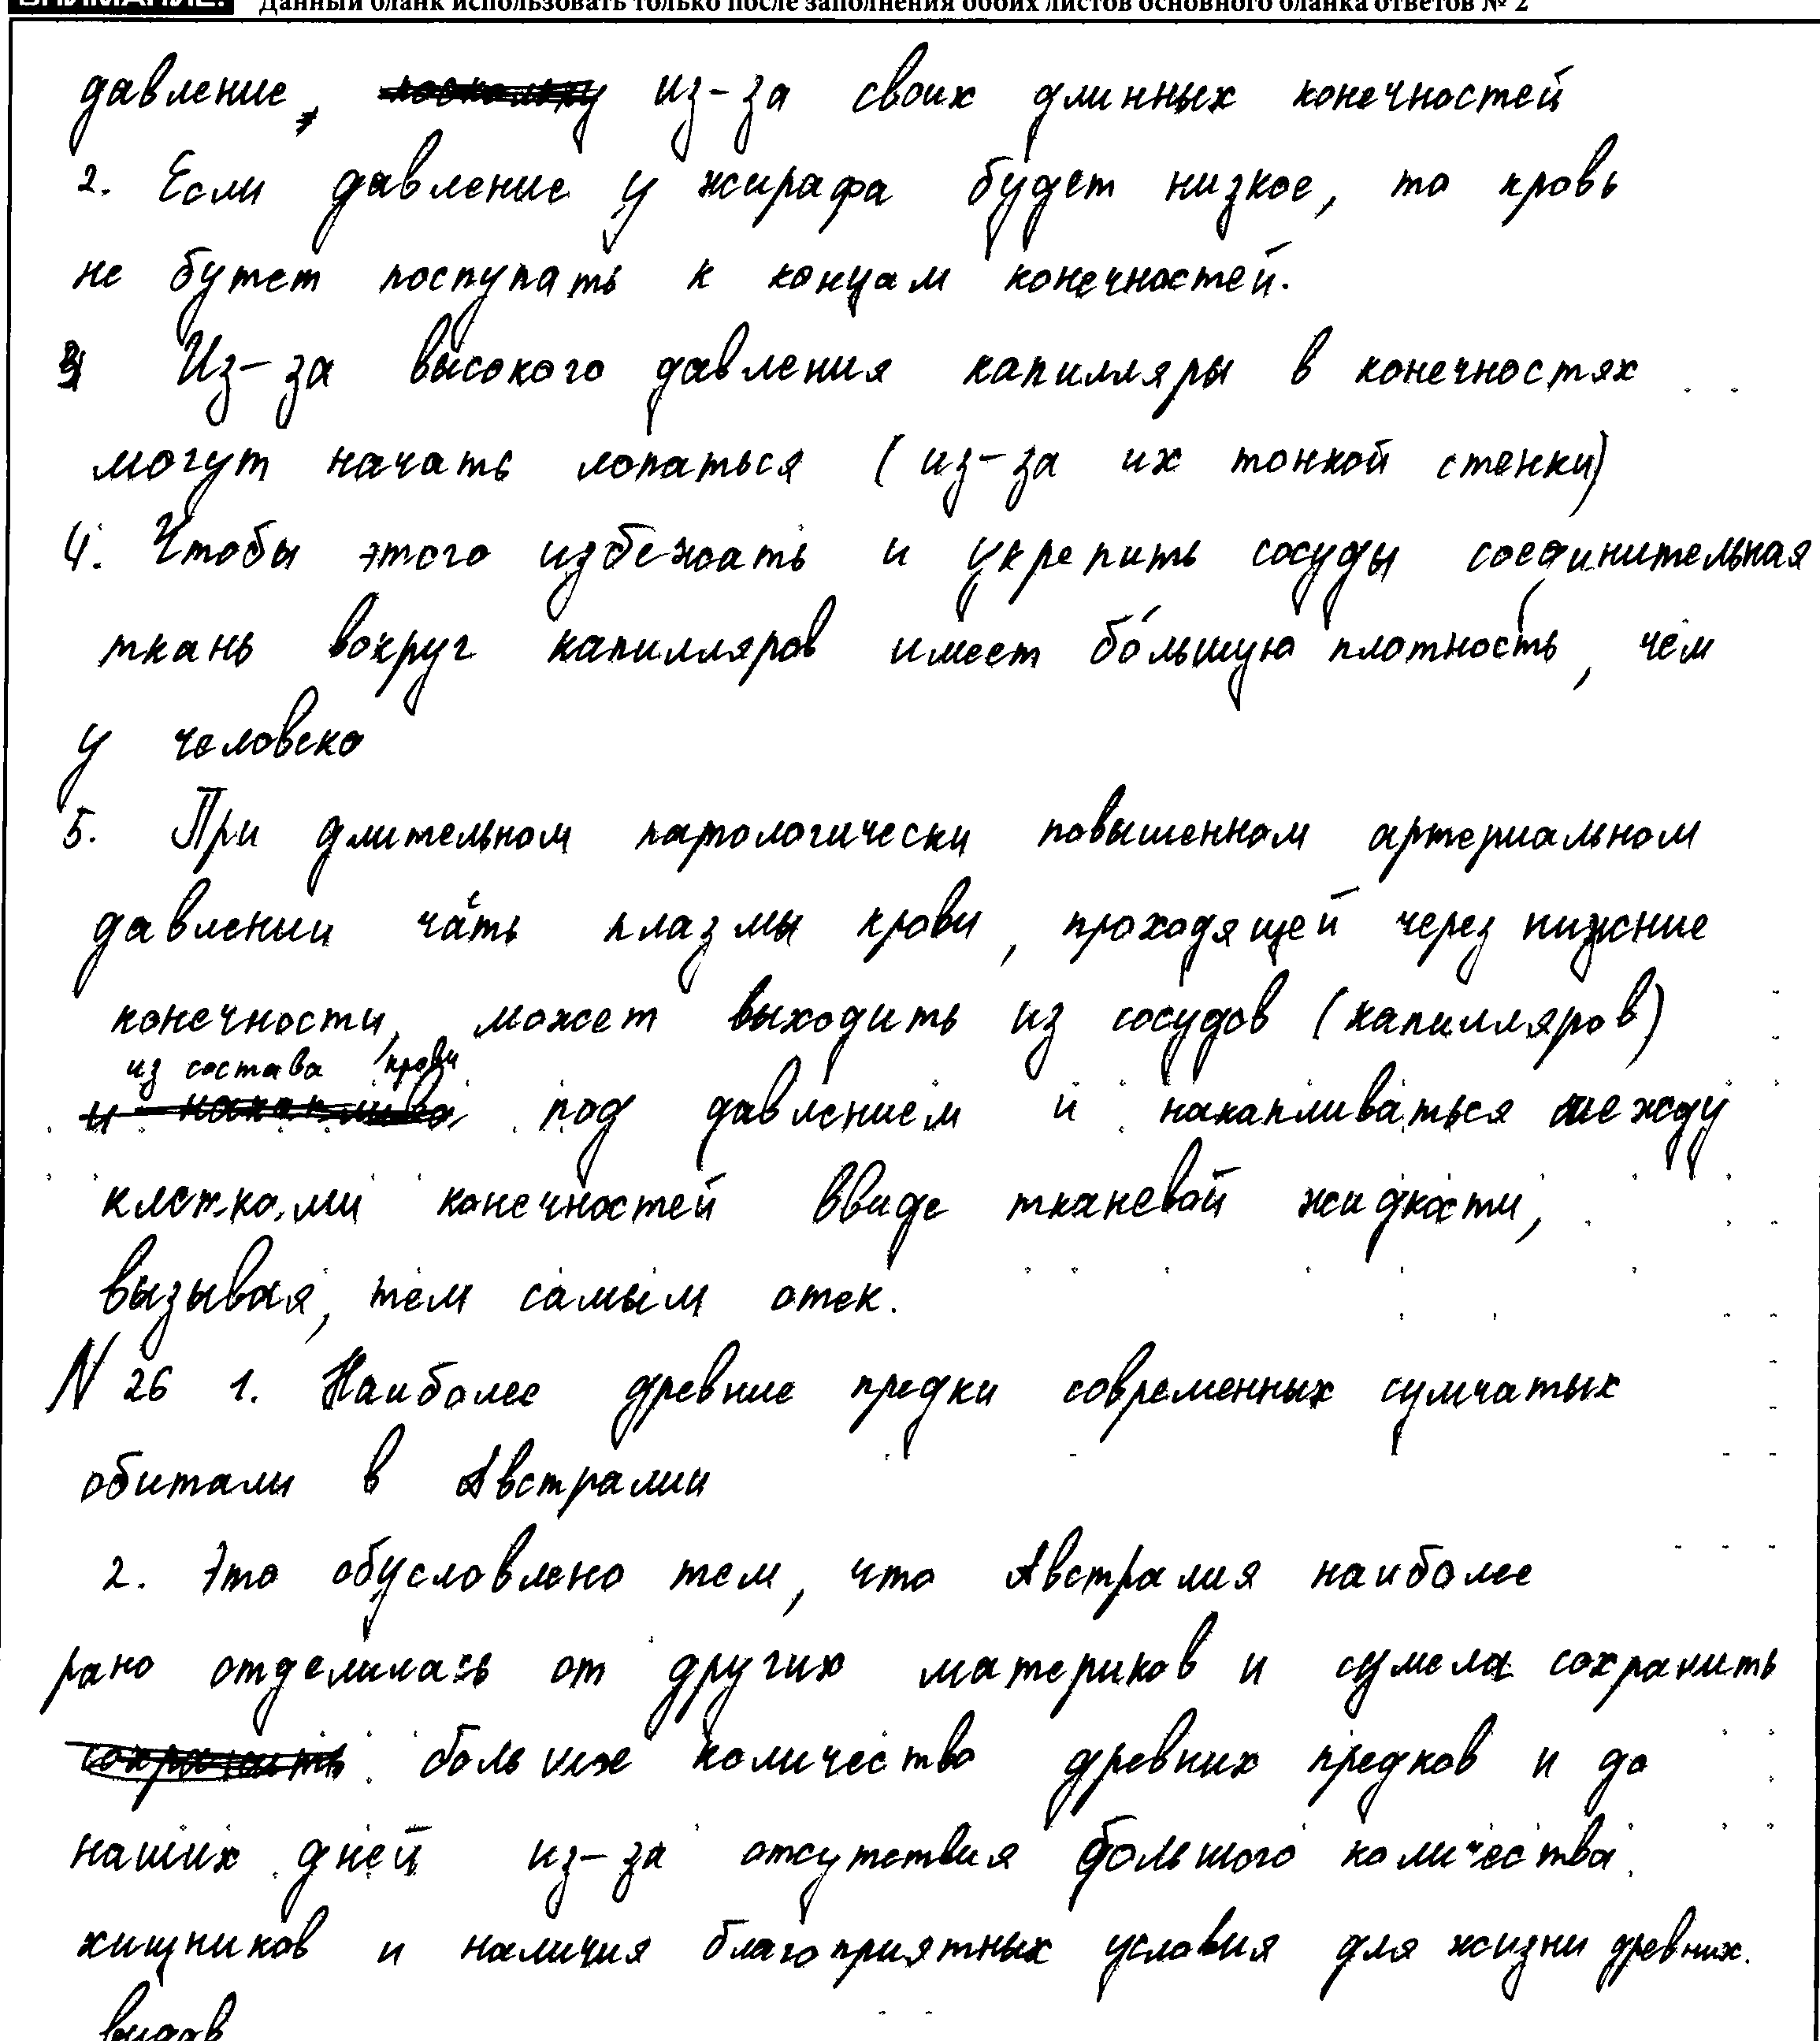 ВНИМАНИЕ! Данный бланк использовать только после заполнения обоих листов основного бланка ответов № 2
давление, из-за своих длинных конечностей
2. Если давление у жирафа будет низкое, то кровь
не бутет поступать к концам конечностей.
3 Из-за высокого давления капилляры в конечностях
могут начать лопаться (из-за их тонкой стенки)
4. Чтобы этого избежать и укрепить сосуды соединительная
ткань вокруг капилляров имеет бо́льшую плотность, чем
у человека
5. При длительном патологически повышенном артериальном
давлении чать плазмы крови, проходящей через нижние
конечности, может выходить из сосудов (капилляров)
из состава крови под давлением и накапливаться между
клетками конечностей ввиде тканевой жидкости,
вызывая, тем самым отек.
N 26 1. Наиболее древние предки современных сумчатых
обитали в Австралии
2. Это обусловлено тем, что Австралия наиболее
рано отделилась от других материков и сумела сохранить
больше количество древних предков и до
наших дней из-за отсутствия большого количества
хищников и наличия благоприятных условия для жизни древних.
видов